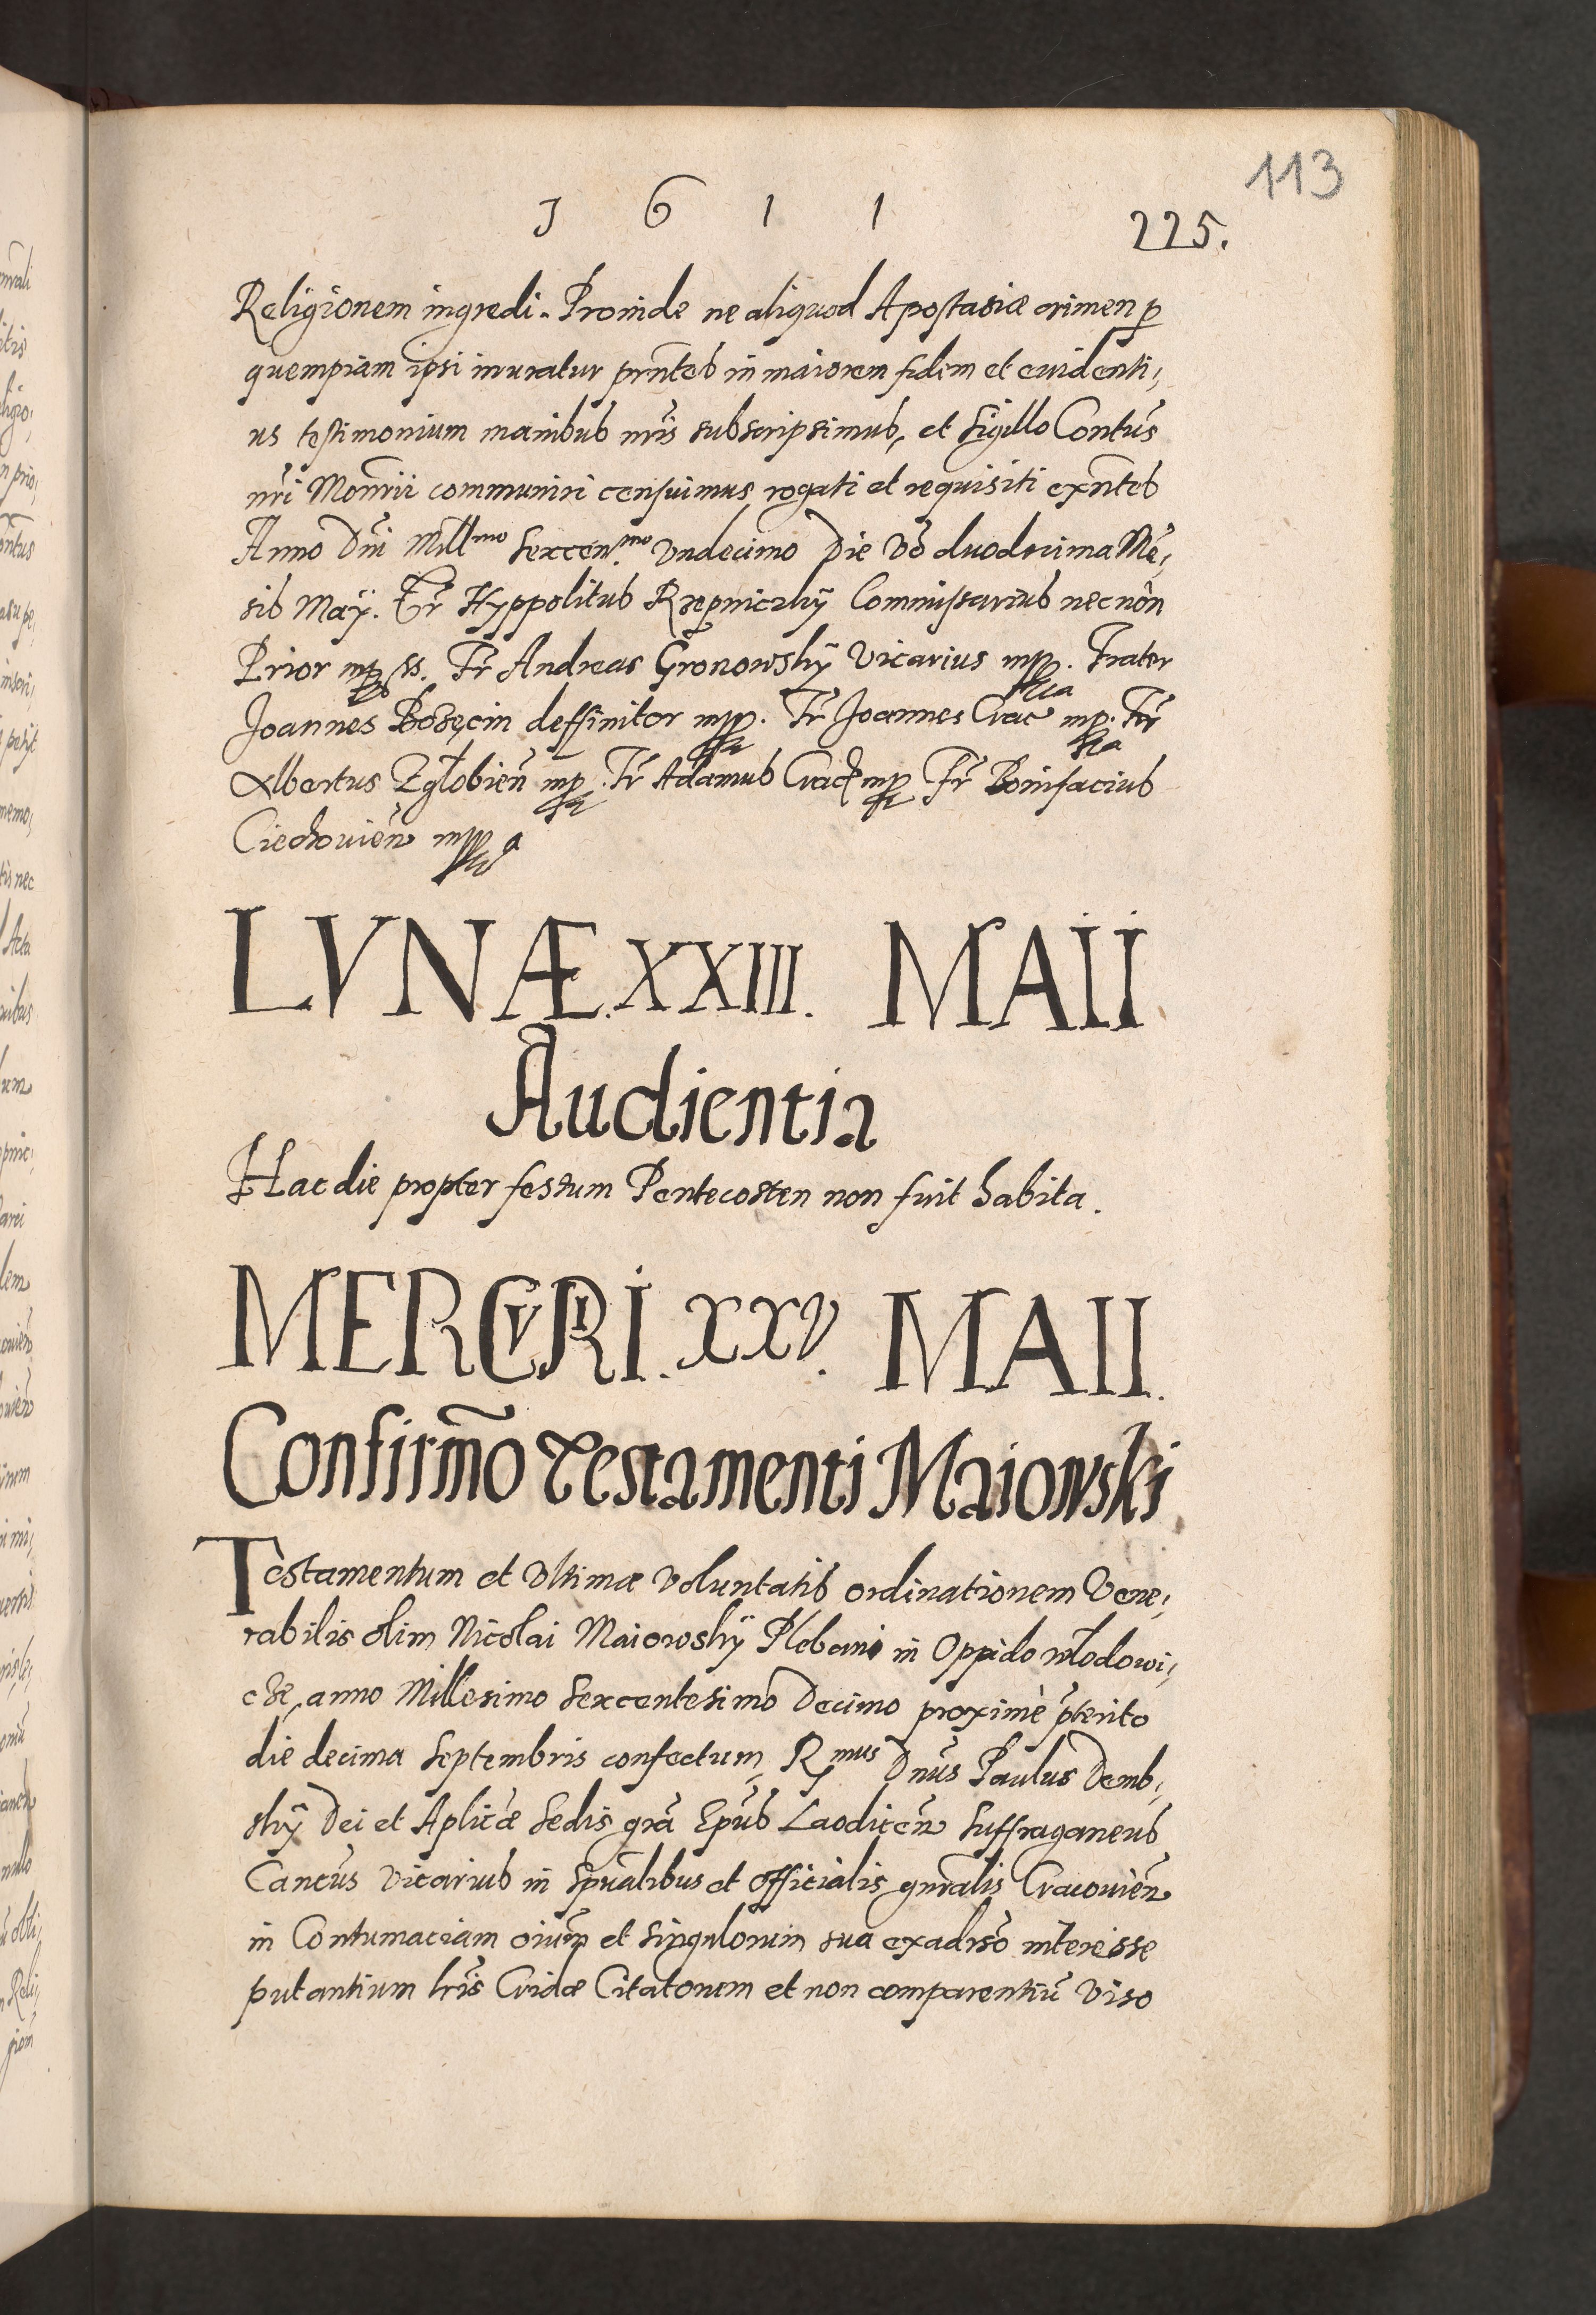 113
1 6 1 1
225.
Religionem ingredi. Proinde ne aliquod Apostasiæ crimen p
quempiam ipsi inuratur prñtes in maiorem fidem et euidenti,
us testimonium manibus nr̃is subscripsimus, et Sigillo Contus̃
nr̃i Monr̃ii communiri censuimus rogati et requisiti exñtes
Anno Dñi Mill̃mo Sexcen.mo Vndecimo Die Vo duodecima Mẽ,
sis Maÿ. Fr̃ Hyppolitus Rzepniczkÿ Commissarius necnon
Prior mp ss. Fr̃ Andreas Gronowskÿ Vicarius mpp. Frater
Joannes Bodzęcin deffinitor mpp. Fr̃ Joannes Crac̃ mp. Fr̃
Albertus Zgłobieñ mp. Fr̃ Adamus Crac̃ mp Fr̃ Bonifacius
Ciechouieñ mpp
LVNÆ.XXIII. MAII
Audientia
Hac die propter festum Pentecosten non fuit habita.
MERCVRII.XXV. MAII.
Confirmõ Testamenti Maiowski
Testamentum et Vltimæ Voluntatis ordinationem Vene,
rabilis olim Nicolai Maiowskÿ Plebani in Oppido Włodowi,
cze, anno Millesimo Sexcentesimo Decimo proximè p̃terito
die decima Septembris confectum, Rmus Dnũs Paulus Demb,
skÿ Dei et Aplicæ Sedis grã Epũs Laodiceñ Suffraganeus
Cancũs Vicarius in Spũalibus et Officialis gnralis Cracouieñ
in Contumaciam oium̃ et Singulorum sua exadr̃so interesse
putantium lr̃is Cridæ Citatorum et non comparentiũ Viso